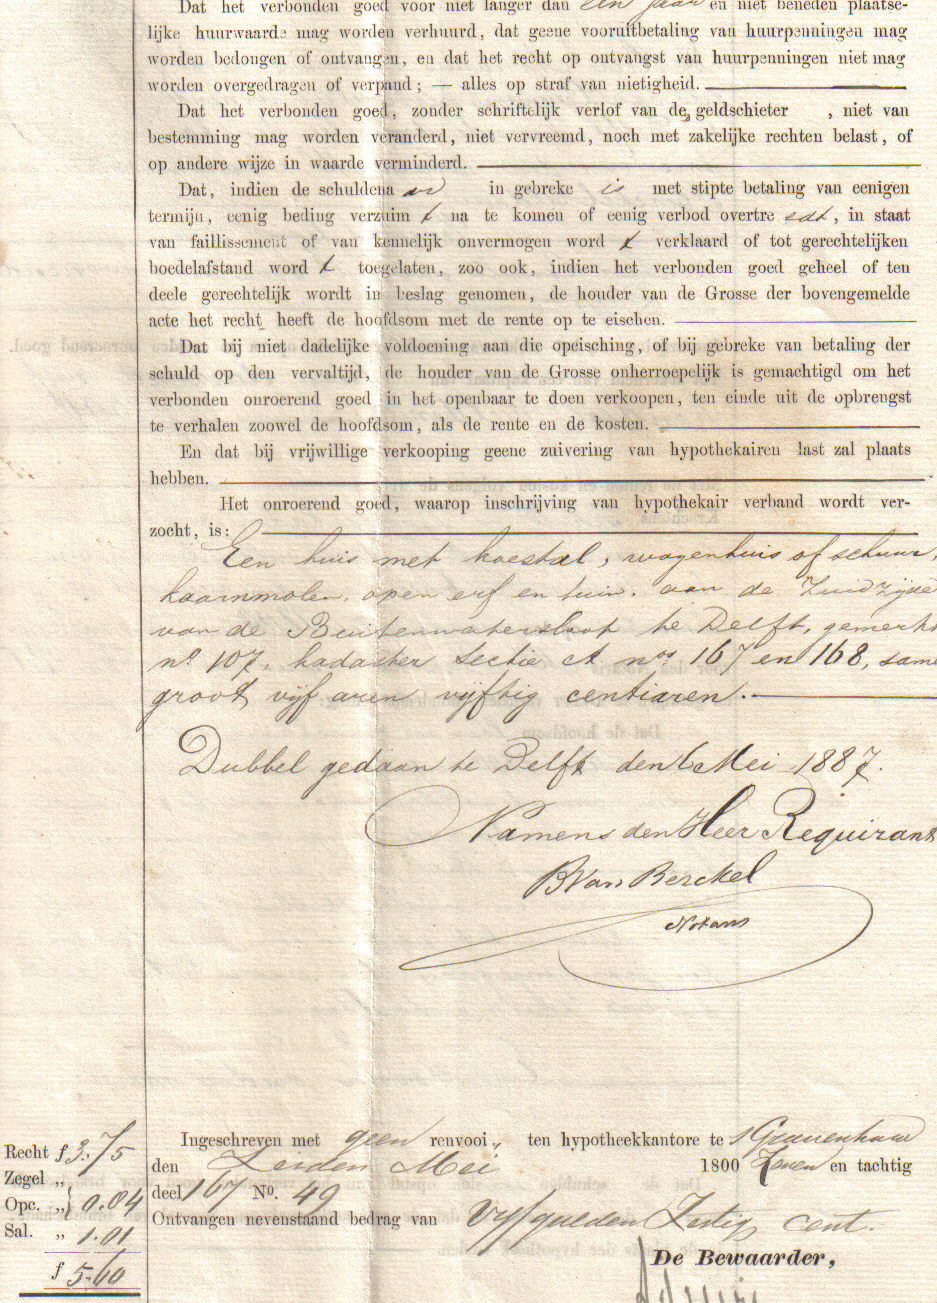 Dat het verbonden goed voor niet langer dan een jaar en niet beneden plaatse-
lijke huurwaarde mag worden verhuurd, dat geene vooruitbetaling van huurpenningen mag
worden bedongen of ontvangen, en dat het recht op ontvangst van huurpenningen niet mag
worden overgedragen of verpand; — alles op straf van nietigheid.
Dat het verbonden goed, zonder schriftelijk verlof van de geldschieter , niet van
bestemming mag worden veranderd, niet vervreemd, noch met zakelijke rechten belast, of
op andere wijze in waarde verminderd.
Dat, indien de schuldena ar in gebreke is met stipte betaling van eenigen
termijn, eenig beding verzuim t na te komen of eenig verbod overtre edt, in staat
van faillissement of van kennelijk onvermogen word t verklaard of tot gerechtelijken
boedelafstand word t toegelaten, zoo ook, indien het verbonden goed geheel of ten
deele gerechtelijk wordt in beslag genomen, de houder van de Grosse der bovengemelde
acte het recht heeft de hoofdsom met de rente op te eischen.
Dat bij niet dadelijke voldoening aan die opeisching, of bij gebreke van betaling der
schuld op den vervaltijd, de houder van de Grosse onherroepelijk is gemachtigd om het
verbonden onroerend goed in het openbaar te doen verkoopen, ten einde uit de opbrengst
te verhalen zoowel de hoofdsom, als de rente en de kosten.
En dat bij vrijwillige verkooping geene zuivering van hypothekairen last zal plaats
hebben.
Het onroerend goed, waarop inschrijving van hypothekair verband wordt ver-
zocht, is:
Een huis met koestal, wagenhuis of schuur,
kaarnmolen, open erf en tuin, aan de Zuidzijde
van de Buitenwatersloot te Delft, gemerkt
no 107, kadaster Sectie A nos 167 en 168, same
groot vijf aren vijftig centiaren.
Dubbel gedaan te Delft den 6 Mei 1887.
Namens den Heer Requirant
B Van Berckel
Notaris
Ingeschreven met geen renvooi, ten hypotheekkantore te 's Gravenhage
den Zesden Mei 1800 Zeven en tachtig
deel 167 No. 49
Ontvangen nevenstaand bedrag van Vijf gulden Zestig cent.
De Bewaarder,
Recht f 3.75
Zegel „
Opc. „ 0.84
Sal. „ 1.01
f 5.60